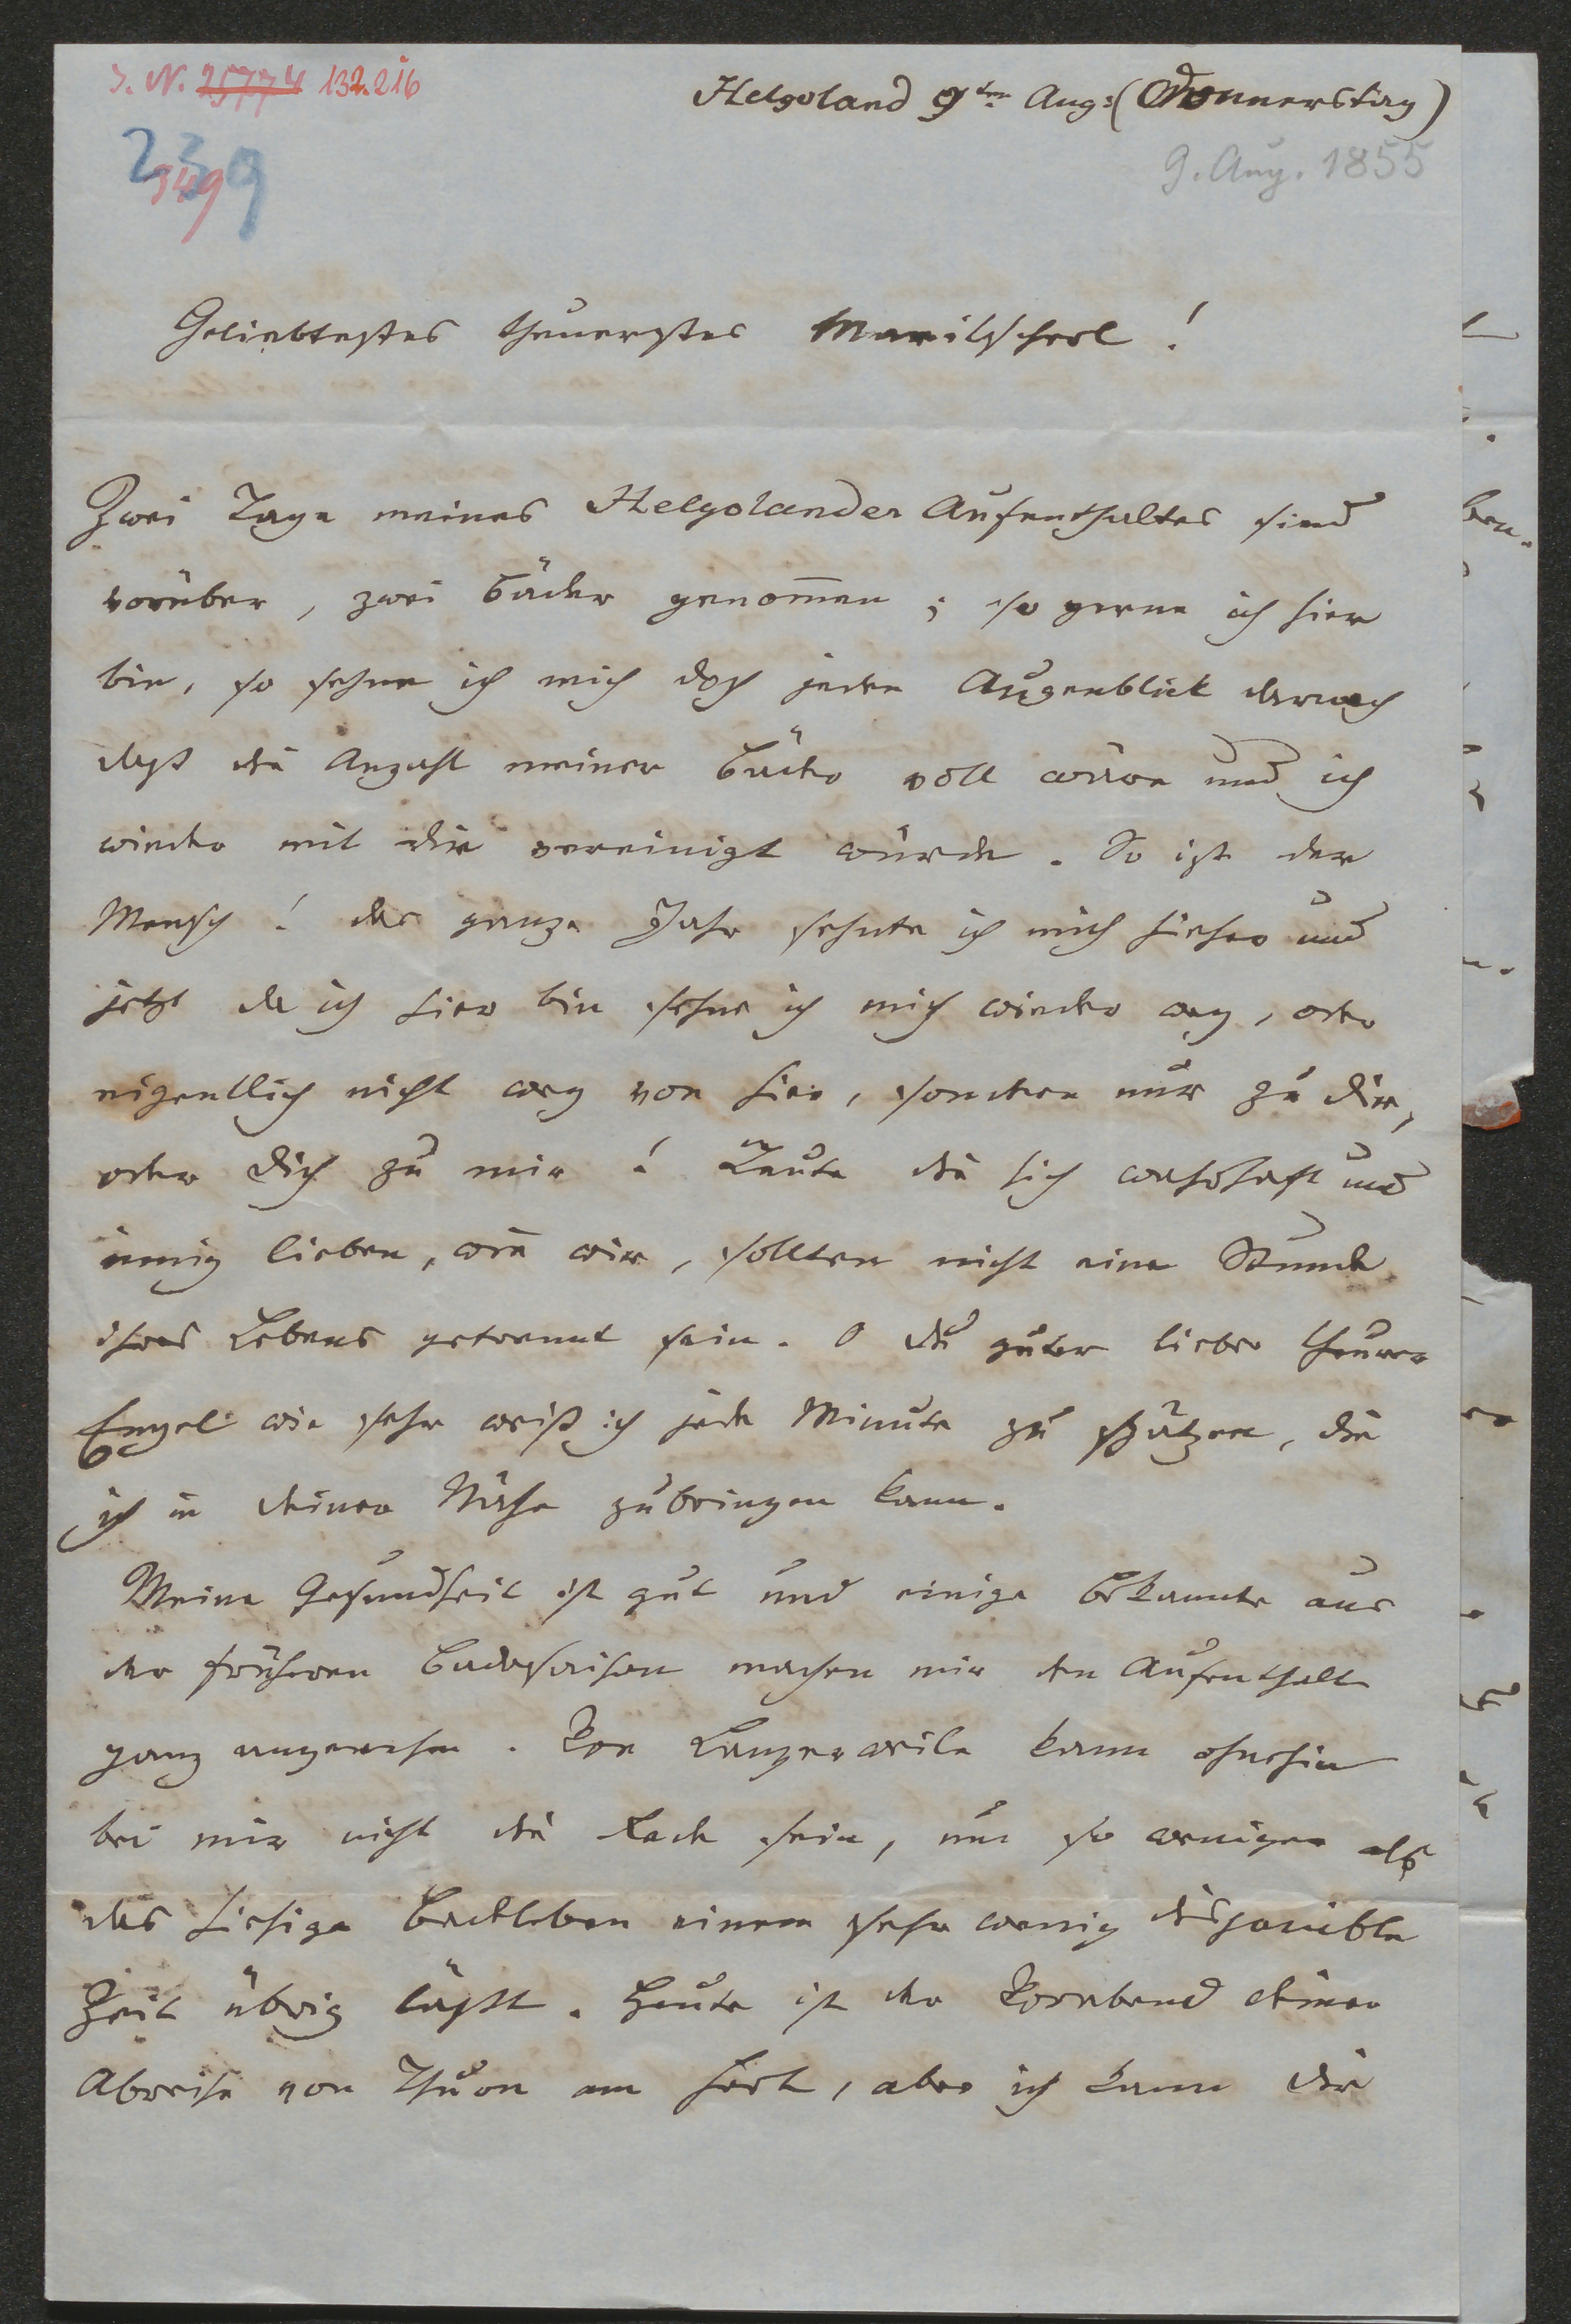 I. N. 25774 132.216
Helgoland 9ten Aug: (Donnerstag)
239
349
9. Aug. 1855
Geliebtestes theuerstes Marilscherl!
Zwei Tage meines Helgolander Aufenthaltes sind
vorüber, zwei Bäder genom̅en; so gerne ich hier
bin, so sehne ich mich doch jeden Augenblick darnach
daß die Anzahl meiner Bäder voll wäre und ich
wieder mit dir vereinigt würde. So ist der
Mensch! das ganze Jahr sehnte ich mich hieher und
jetzt da ich hier bin sehne ich mich wieder weg, oder
eigentlich nicht weg von hier, sondern nur zu dir,
oder dich zu mir! Leute die sich wahrhaft und
innig lieben, wie wir, sollten nicht eine Stunde
ihres Lebens getrennt sein. O du guter lieber theurer
Engel wie sehr weiß ich jede Minute zu schätzen, die
ich in deiner Nähe zubringen kann.
Meine Gesundheit ist gut und einige Bekannte aus
der früheren Badesaison machen mir den Aufenthalt
ganz angenehm. Von Langerweile kann ohnehin
bei mir nicht die Rede sein, um so weniger als
das hiesige Badeleben einem sehr wenig disponible
Zeit übrig läßt. Heute ist der Vorabend deiner
Abreise von Thurn am Hart, aber ich kann dir